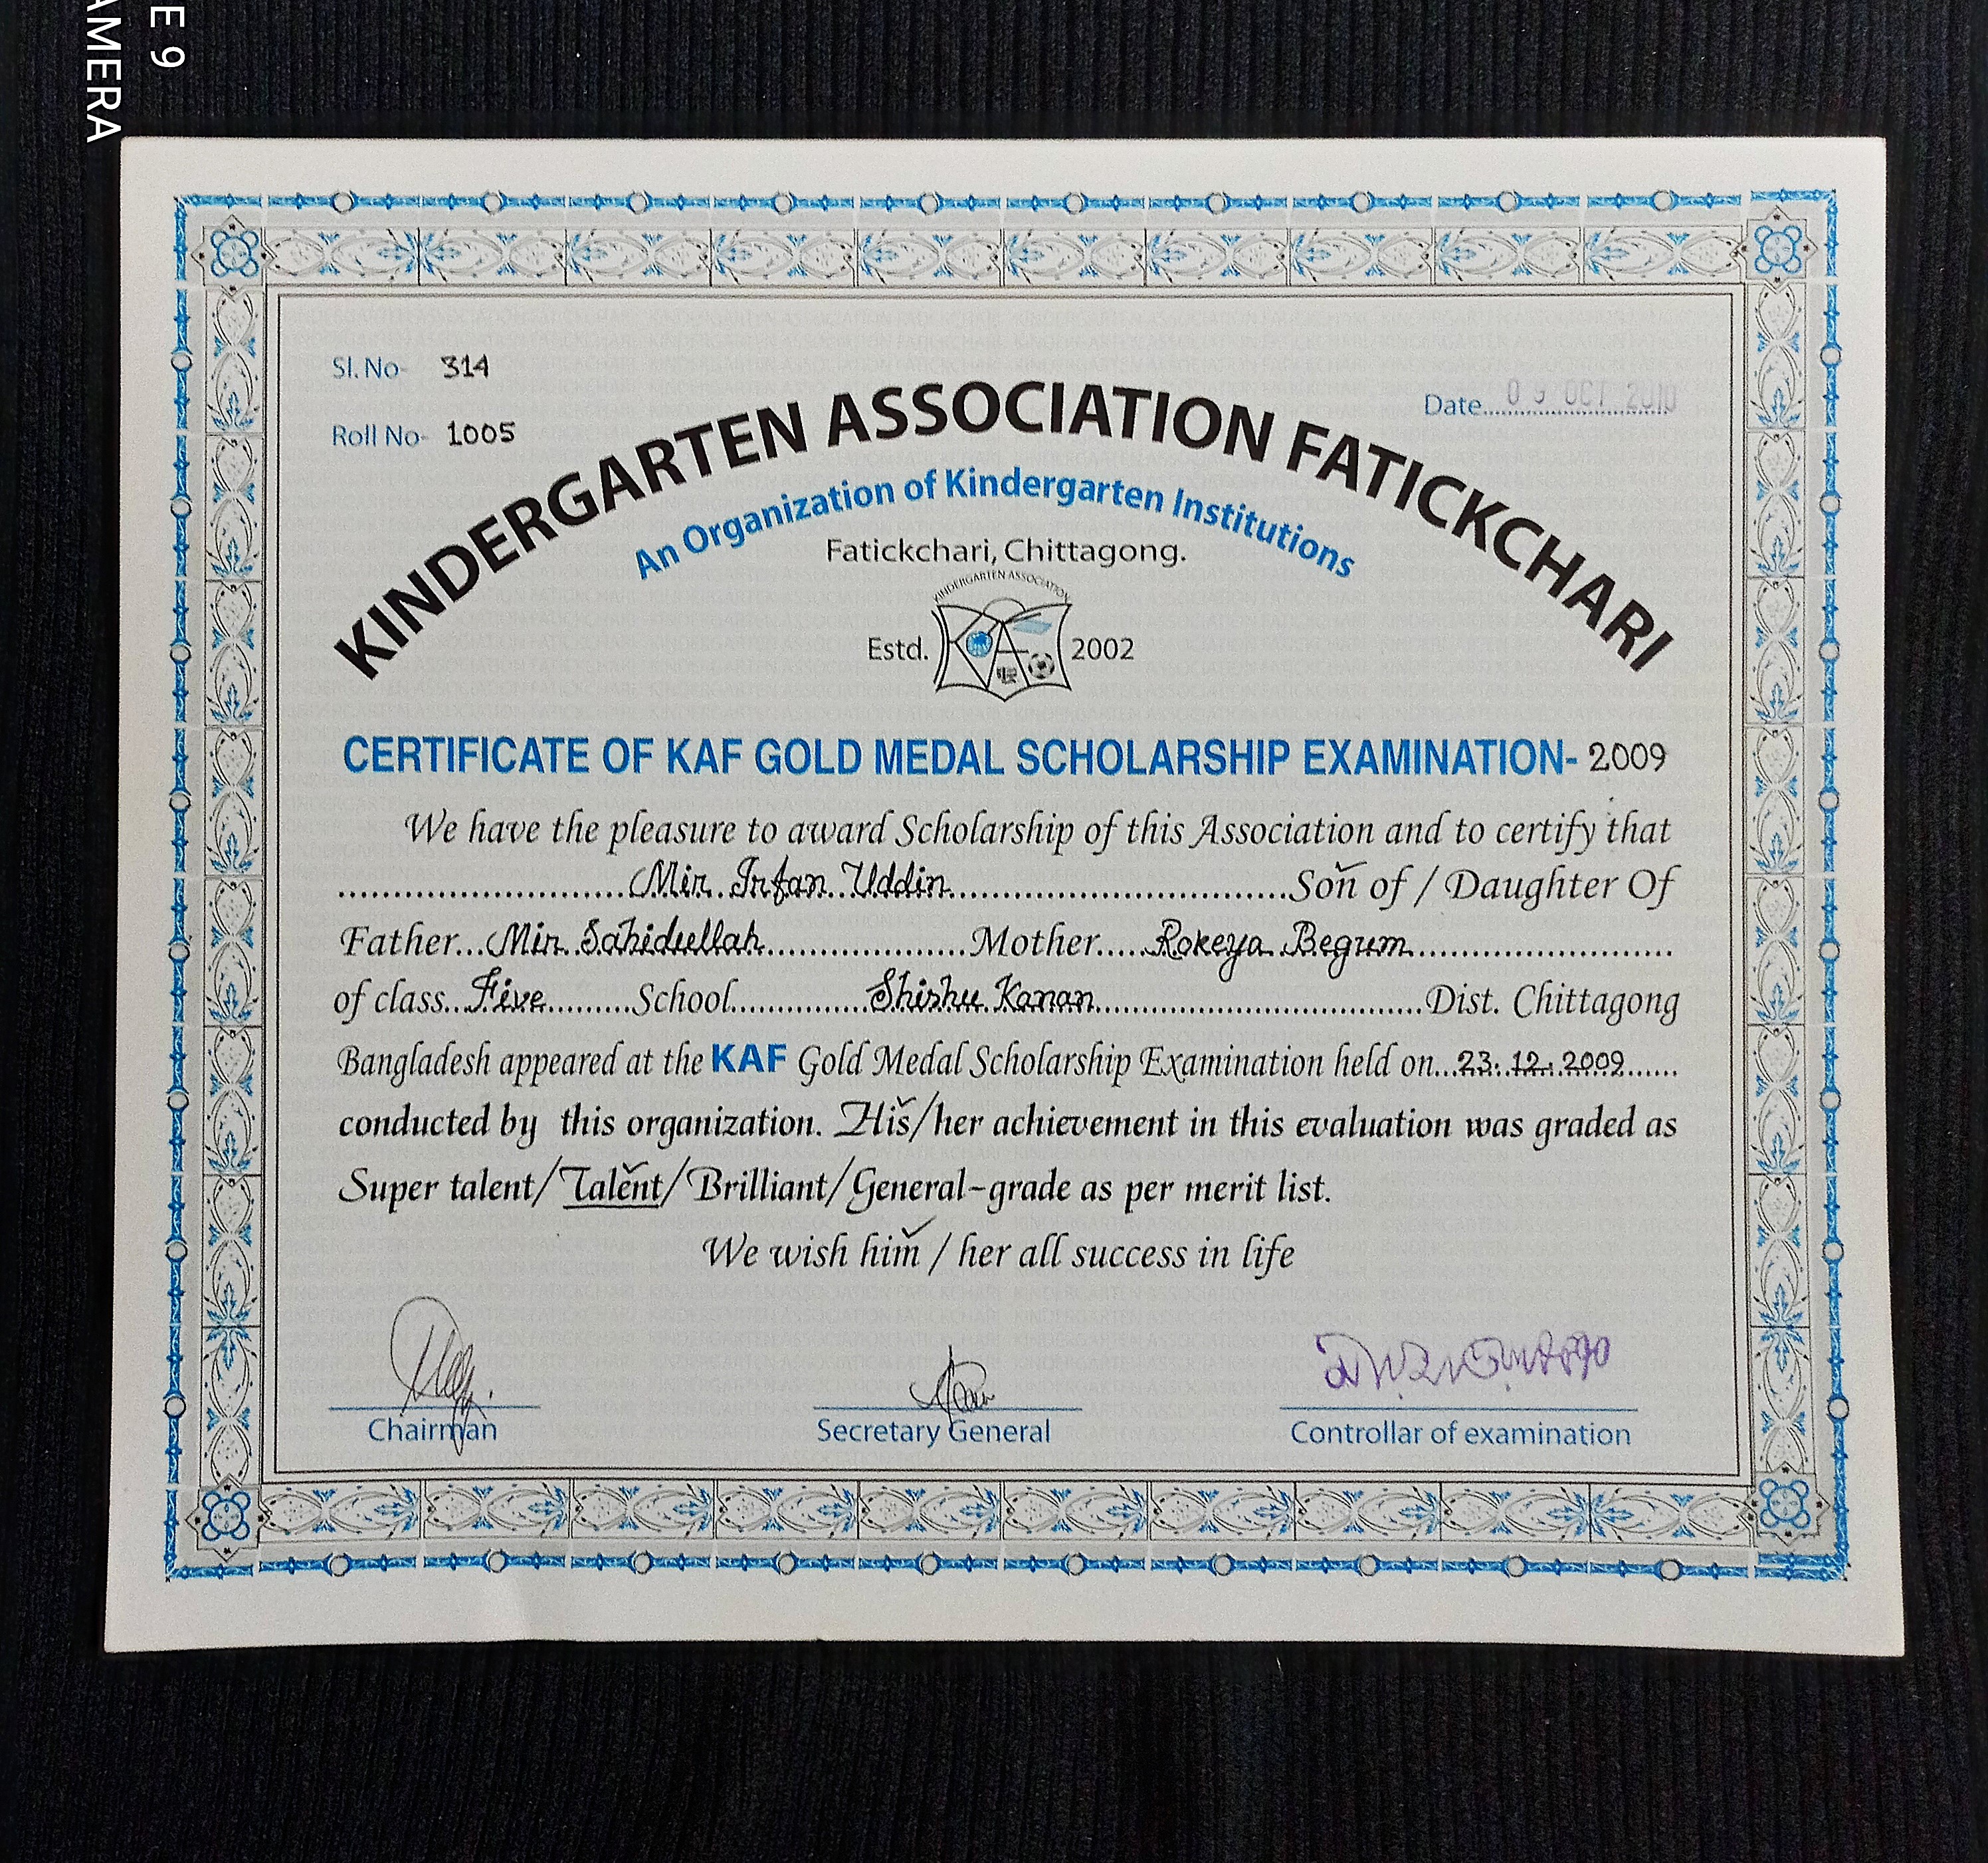 E 9
AMERA
Sl. No- 314
Roll No- 1005
Date 09 OCT 2010
KINDERGARTEN ASSOCIATION FATICKCHARI
An Organization of Kindergarten Institutions
Fatickchari, Chittagong.
KINDERGARTEN ASSOCIATION
Estd. 2002
CERTIFICATE OF KAF GOLD MEDAL SCHOLARSHIP EXAMINATION- 2009
We have the pleasure to award Scholarship of this Association and to certify that
Mir Irfan Uddin Son of / Daughter Of
Father Mir Sahidullah Mother Rokeya Begum
of class Five School Shishu Kanan Dist. Chittagong
Bangladesh appeared at the KAF Gold Medal Scholarship Examination held on 23.12.2009
conducted by this organization. His/her achievement in this evaluation was graded as
Super talent/Talent/Brilliant/General-grade as per merit list.
We wish him / her all success in life
Chairman
Secretary General
Controllar of examination